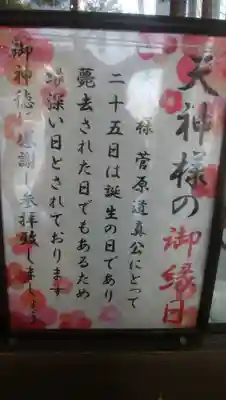 天神様の御縁日
様 菅原道真公にとって
二十五日は誕生の日であり
薨去された日でもあるため
深い日とされております
御神徳に感謝し参拝致しましょう